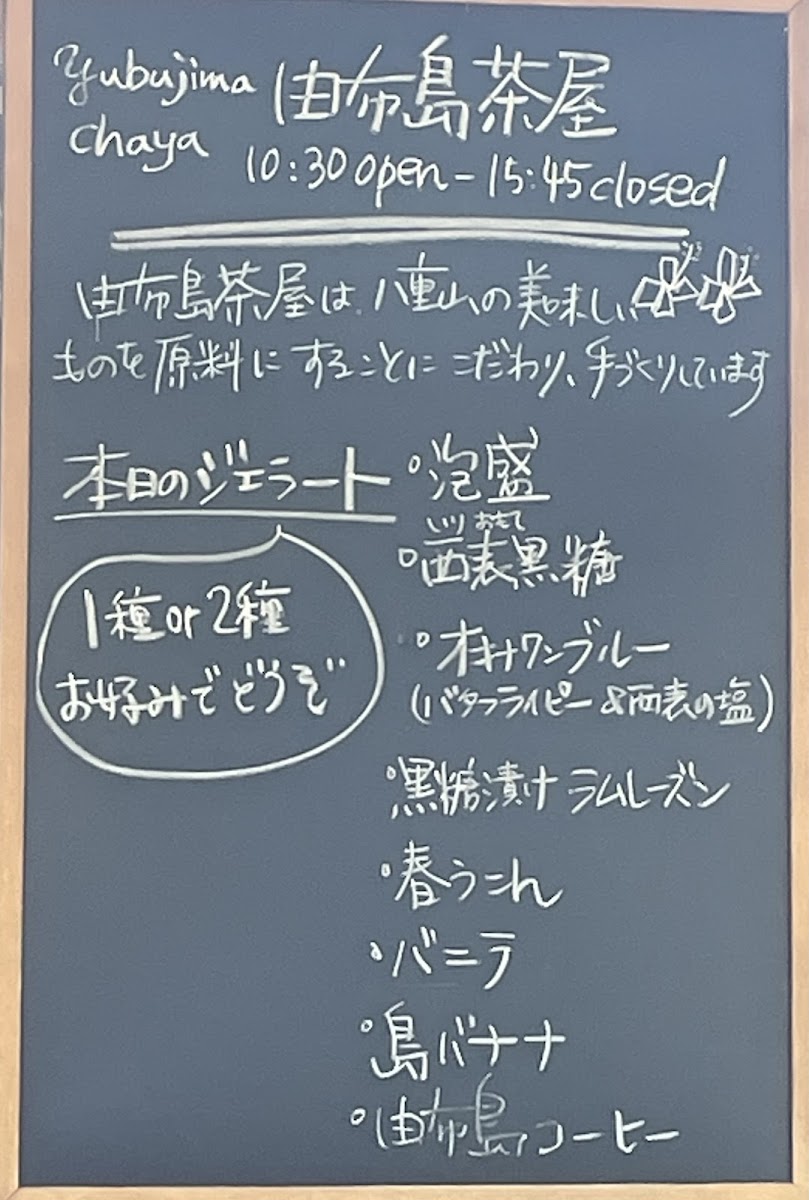 Yubujima
chaya
由布島茶屋
10:30 open - 15:45 closed
由布島茶屋は、八重山の美味しい
ものを原料にすることにこだわり、手づくりしています
本日のジェラート
1種or2種
お好みでどうぞ
・泡盛
いりおもて
・西表黒糖
・オキナワンブルー
(バタフライピー&西表の塩)
・黒糖漬けラムレーズン
・春うこん
・バニラ
・島バナナ
・由布島コーヒー